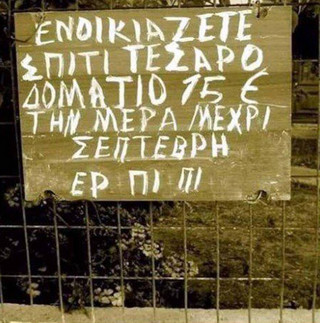 ΕΝΟΙΚΙΑΖΕΤΕ
ΣΠΙΤΙ ΤΕΣΑΡΟ
ΔΟΜΑΤΙΟ 15 €
ΤΗΝ ΜΕΡΑ ΜΕΧΡΙ
ΣΕΠΤΕΒΡΗ
ΕΡ ΠΙ ΠΙ